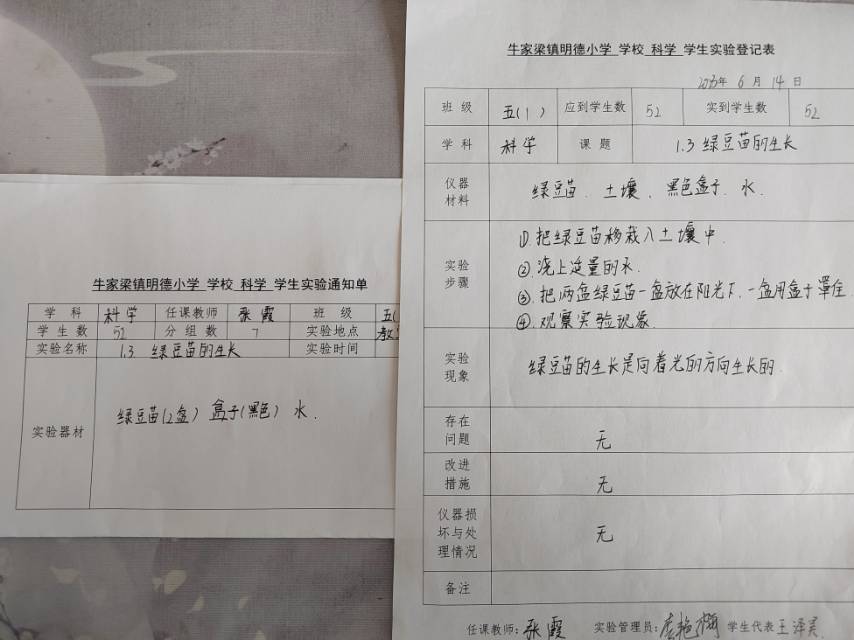 牛家梁镇明德小学 学校 科学 学生实验通知单
学科 科学 任课教师 张霞 班级 五(
学生数 52 分组数 7 实验地点
实验名称 1.3 绿豆苗的生长 实验时间
实验器材 绿豆苗(2盆) 盒子(黑色) 水.
牛家梁镇明德小学 学校 科学 学生实验登记表
2023年 6月 14日
班级 五(1) 应到学生数 52 实到学生数 52
学科 科学 课题 1.3 绿豆苗的生长
仪器材料 绿豆苗、土壤、黑色盒子、水.
实验步骤 ①.把绿豆苗移栽入土壤中.
②.浇上定量的水.
③.把两盆绿豆苗一盆放在阳光下.一盆用盒子罩住.
④.观察实验现象.
实验现象 绿豆苗的生长是向着光的方向生长的.
存在问题 无
改进措施 无
仪器损坏与处理情况 无
备注
任课教师:张霞 实验管理员: 学生代表